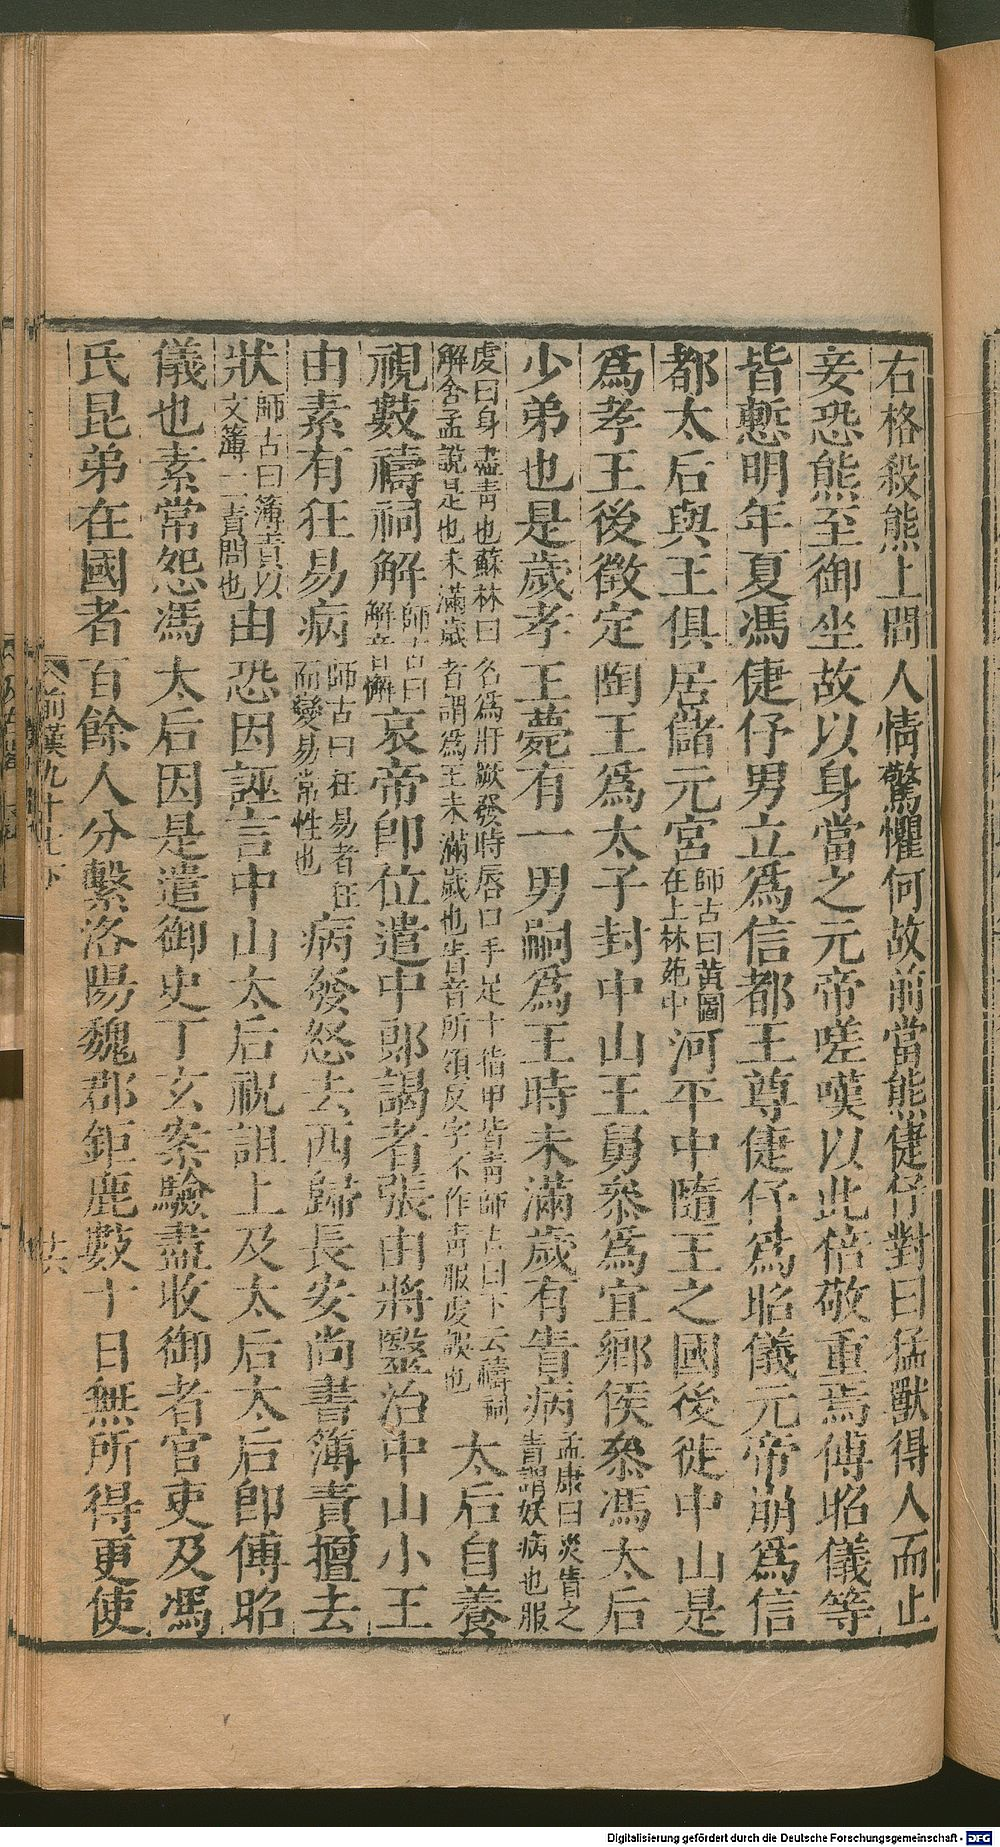 右格殺熊上問人情驚懼何故前當熊倢伃對曰猛獸得人而止
妾恐熊至御坐故以身當之元帝嗟嘆以此倍敬重焉傅昭儀等
皆慙明年夏馮倢伃男立爲信都王尊倢伃爲昭儀元帝崩爲信
都太后與王俱居儲元宮師古曰黃圖在上林苑中河平中隨王之國後徙中山是
爲孝王後徵定陶王爲太子封中山王舅叅爲宜鄉侯叅馮太后
少弟也是歲孝王薨有一男嗣爲王時未滿歲有眚病孟康曰災眚之眚謂妖病也服
虔曰身盡青也蘇林曰名爲肝厥發時唇口手足十指甲皆青師古曰下云禱祠解舍孟說是也未滿歲者謂爲王未滿歲也眚音所領反字不作青服虔誤也太后自養
視數禱祠解師古曰解音懈哀帝卽位遣中郎謁者張由將毉治中山小王
由素有狂易病師古曰狂易者狂而變易常性也病發怒去西歸長安尚書簿責擅去
狀師古曰簿責以文簿一一責問也由恐因誣言中山太后祝詛上及太后太后卽傅昭
儀也素常怨馮太后因是遣御史丁玄案驗盡收御者官吏及馮
氏昆弟在國者百餘人分繫洛陽魏郡鉅鹿數十日無所得更使
前漢九十七下
Digitalisierung gefördert durch die Deutsche Forschungsgemeinschaft - DFG